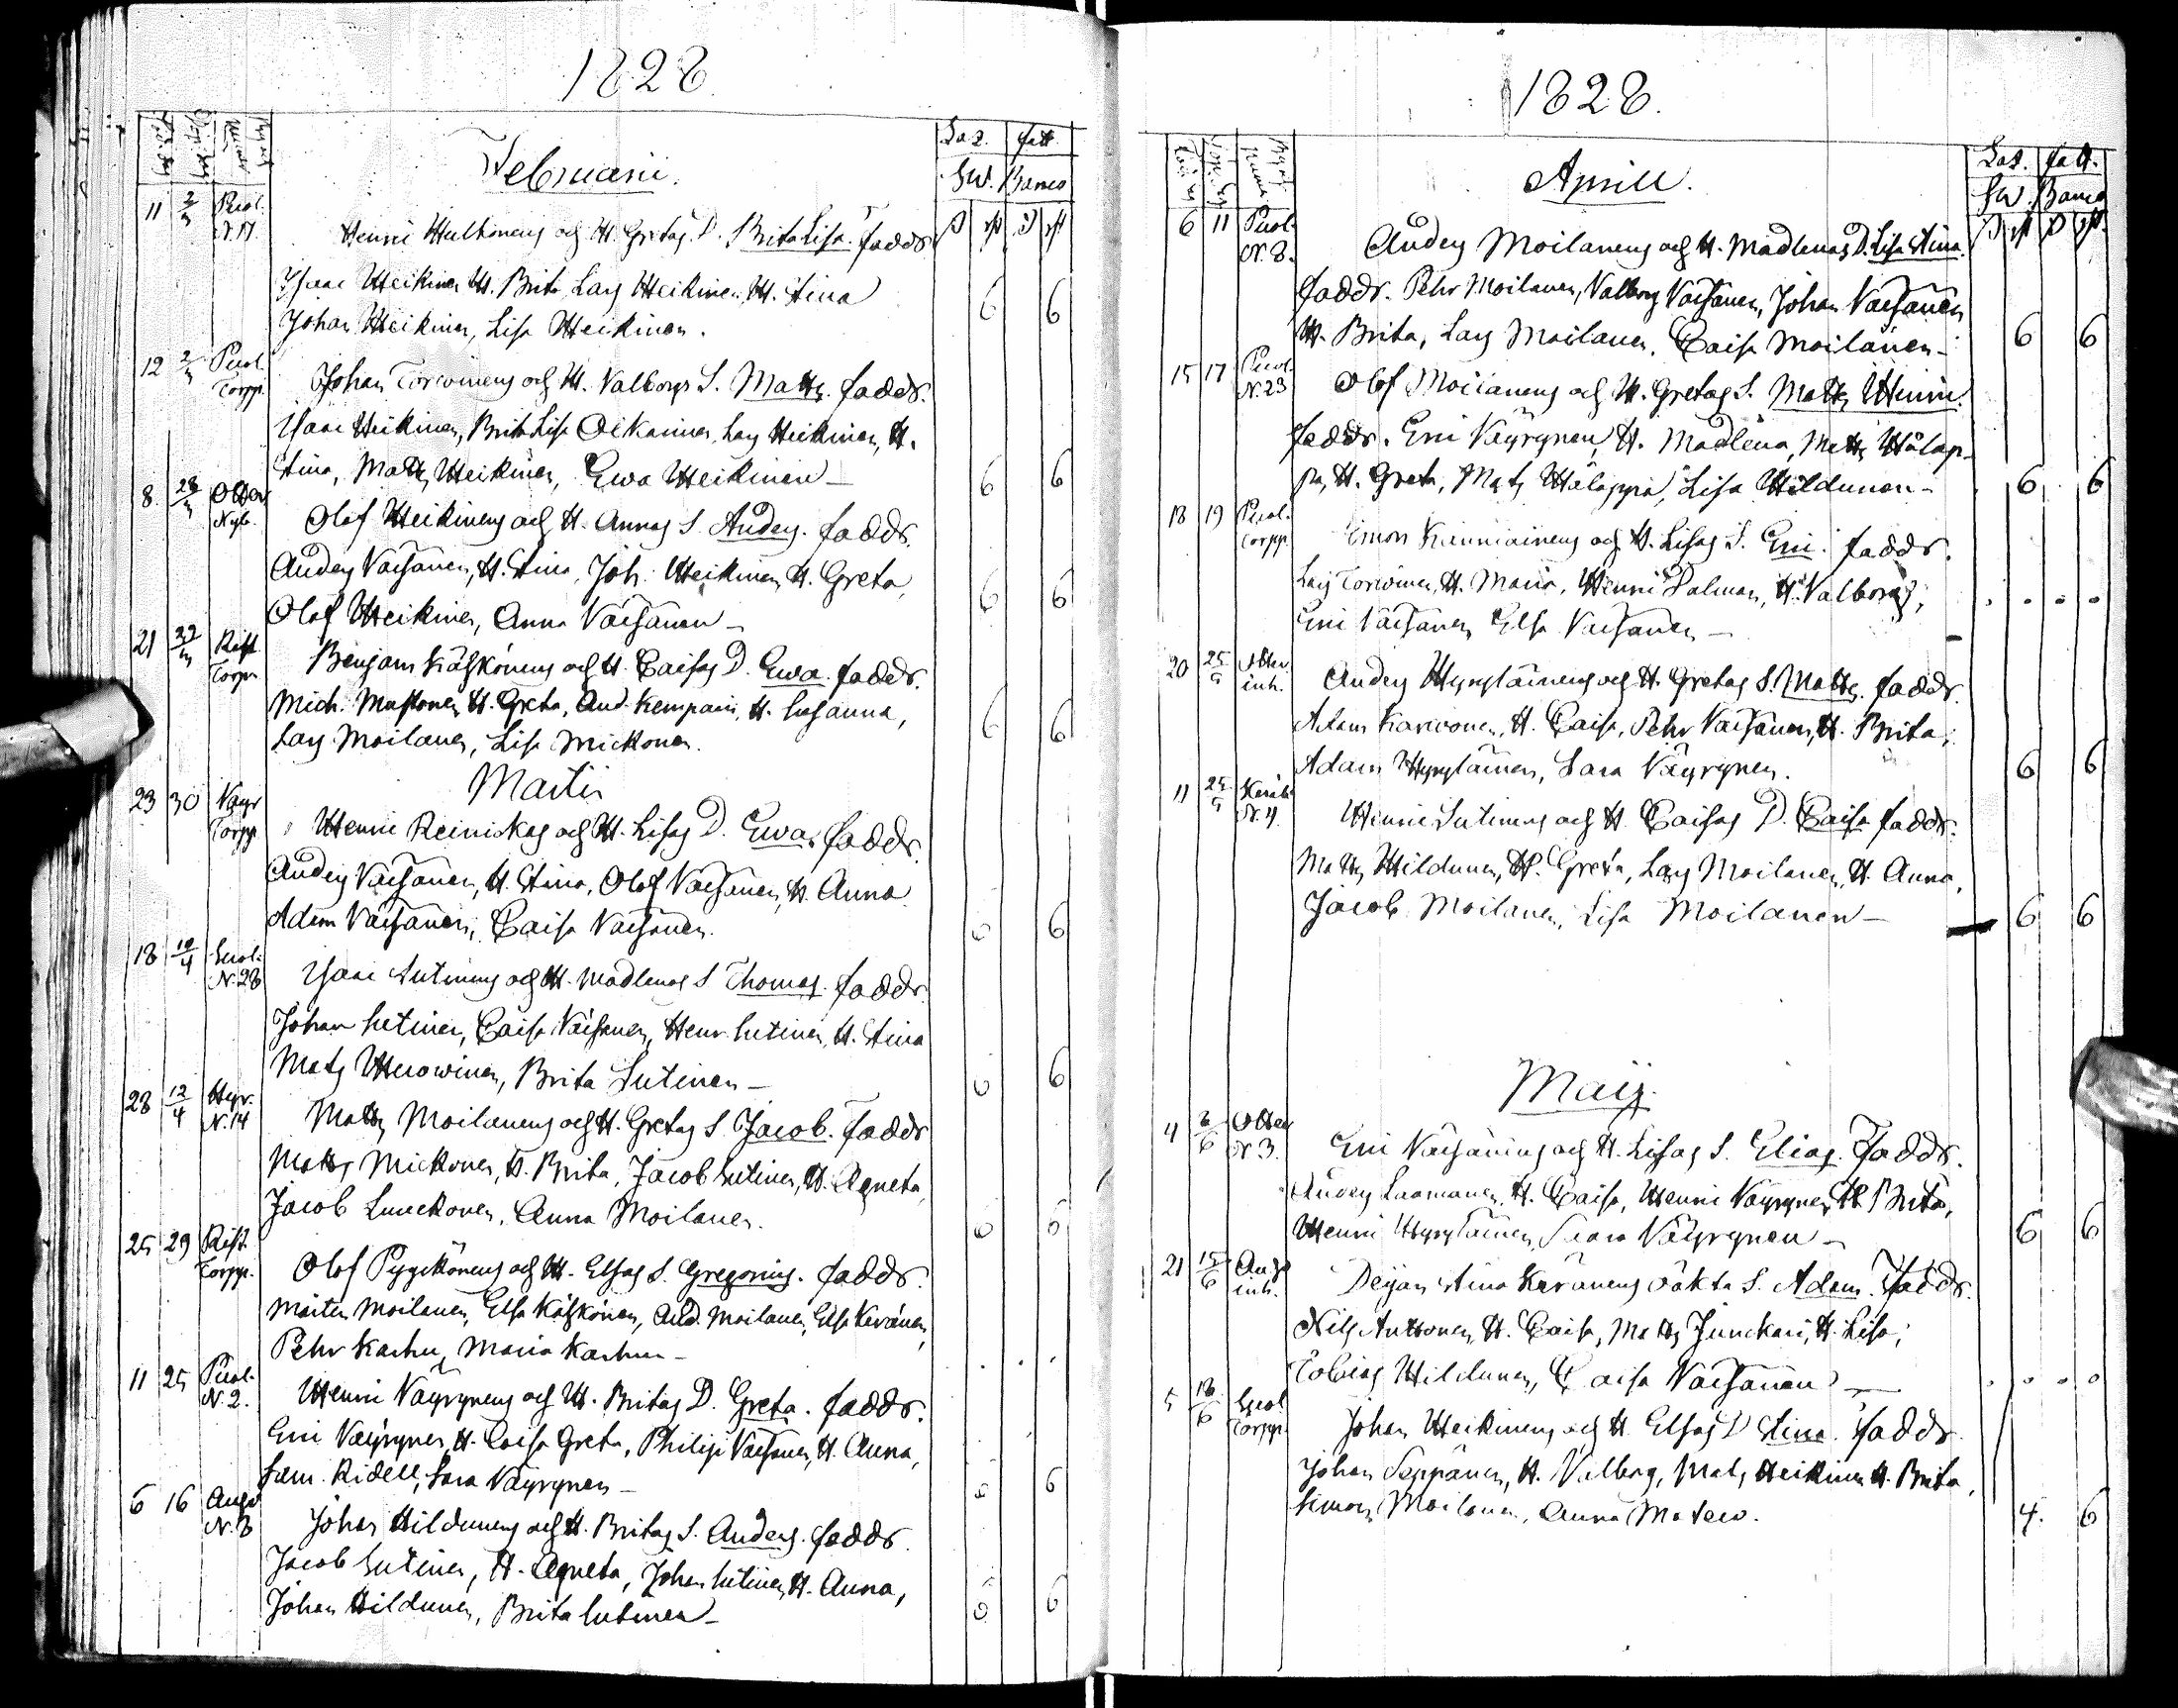 1828
Februarii.
Laz. fatt.
Sw. Banco
11 2/3 Puol. N. 17 Henric Hultinens och H. Gretas D. Brita Lisa. faddr.
Isaac Heikinen H. Brita, Lars Heikinen, H. Stina 6 6
Johan Heikinen, Lisa Heikinen.
12 2/3 Puol. Torpp. Johan Torwinens och H. Valborgs S. Matts. faddr.
Isaac Heikinen, Brita Lisa Oikarinen, Lars Heikinen, H.
Stina, Matts Heikinen, Ewa Heikinen – 6 6
8. 28/3 Otter Nyb. Olof Heikinens och H. Annas S. Anders. faddr.
Anders Väisänen, H. Stina, Joh. Heikinen, H. Greta, 6 6
Olof Heikinen, Anna Väisänen –
21 Rist. Torpp. Benjam Käskönens och H. Caisas D. Ewa. faddr.
Mich. Mustonen, H. Greta, And. Kempain, H. Susanna, 6 6
Lars Moilanen, Lisa Mickonen.
Martii
23 30 Väyr Torpp. Henric Reinickas och H. Lisas D. Ewa. faddr.
Anders Väisänen, H. Stina, Olof Väisänen, H. Anna
Adam Väisänen, Caisa Väisänen. 6 6
18 10/4 Suol. N. 28 Isaac Sutinens och H. Madlenas S. Thomas. faddr.
Johan Sutinen, Caisa Väisänen, Henr. Sutinen, H. Stina
Mats Huowinen, Brita Sutinen – 6 6
28 12/4 Hyr. N. 14 Matts Moilanens och H. Gretas S. Jacob. faddr
Matts Mickonen, H. Brita, Jacob Sutinen, H. Agneta,
Jacob Lunckonen, Anna Moilanen. 6 6
25 29 Rist. Torpp. Olof Pyykönens och H. Elsas S. Gregorius. faddr.
Mårten Moilanen, Elsa Käskönen, And. Moilanen, Elsa Keränen,
Pehr Karhu, Maria Karhu –
11 25 Puol. N. 2. Henric Väyrynens och H. Britas D. Greta. faddr.
Eric Väyrynen, H. Caisa Greta, Philip Väisänen, H. Anna,
Sam. Ridell, Sara Väyrynen – 6 6
6 16 Ango N. 8 Johan Hildunens och H. Britas S. Anders. faddr.
Jacob Sutinen, H. Agneta, Johan Sutinen, H. Anna,
Johan Hildunen, Brita Sutinen – 6 6
1828.
Aprill.
Laz. fatt.
Sw. Banco
6 11 Puol. N. 8. Anders Moilanens och H. Madlenas D. Lisa Stina.
faddr. Pehr Moilanen, Valborg Väisänen, Johan Väisänen
H. Brita, Lars Moilanen, Caisa Moilanen – 6 6
15 17 Puol. N. 23 Olof Moilanens och H. Gretas S. Matts Henric.
faddr. Eric Väyrynen, H. Madlena, Matts Hälap-
pa, H. Greta, Mats Hälappa, Lisa Hildunen – 6 6
18 19 Puol. Torpp. Simon Kinniainens och H. Lisas S. Eric. faddr.
Lars Torwinen, H. Maria, Henric Salman, H. Valborg,
Eric Väisänen, Elsa Väisänen –
20 25/5 Otter inh. Anders Hyrylainens och H. Gretas S. Matts. faddr.
Adam Karwonen, H. Caisa, Pehr Väisänen, H. Brita,
Adam Hyryläinen, Sara Väyrynen. 6 6
11 25/5 N. 4. Henric Sutinens och H. Caisas D. Caisa. faddr.
Matts Hildunen, H. Greta, Lars Moilanen, H. Anna,
Jacob Moilanen, Lisa Moilanen – 6 6
Maij.
4 Otter N. 3. Eric Väisäninens och H. Lisas S. Elias. faddr.
Anders Laamanen, H. Caisa, Henric Väyrynen, H. Brita,
Henric Hyryläinen, Sara Väyrynen – 6 6
21 15/6 Ango inh. Deijan Stina Keränens oäkta S. Adam. faddr.
Nils Anttonen, H. Caisa, Matts Junckari, H. Lisa,
Tobias Hildunen, Caisa Väisänen –
5 18/6 Suol Torpp. Johan Heikinens och H. Elsas D. Stina. faddr.
Johan Seppänen, H. Valborg, Mats Heikinen, H. Brita,
Simon Moilanen, Anna Matero. 4. 6